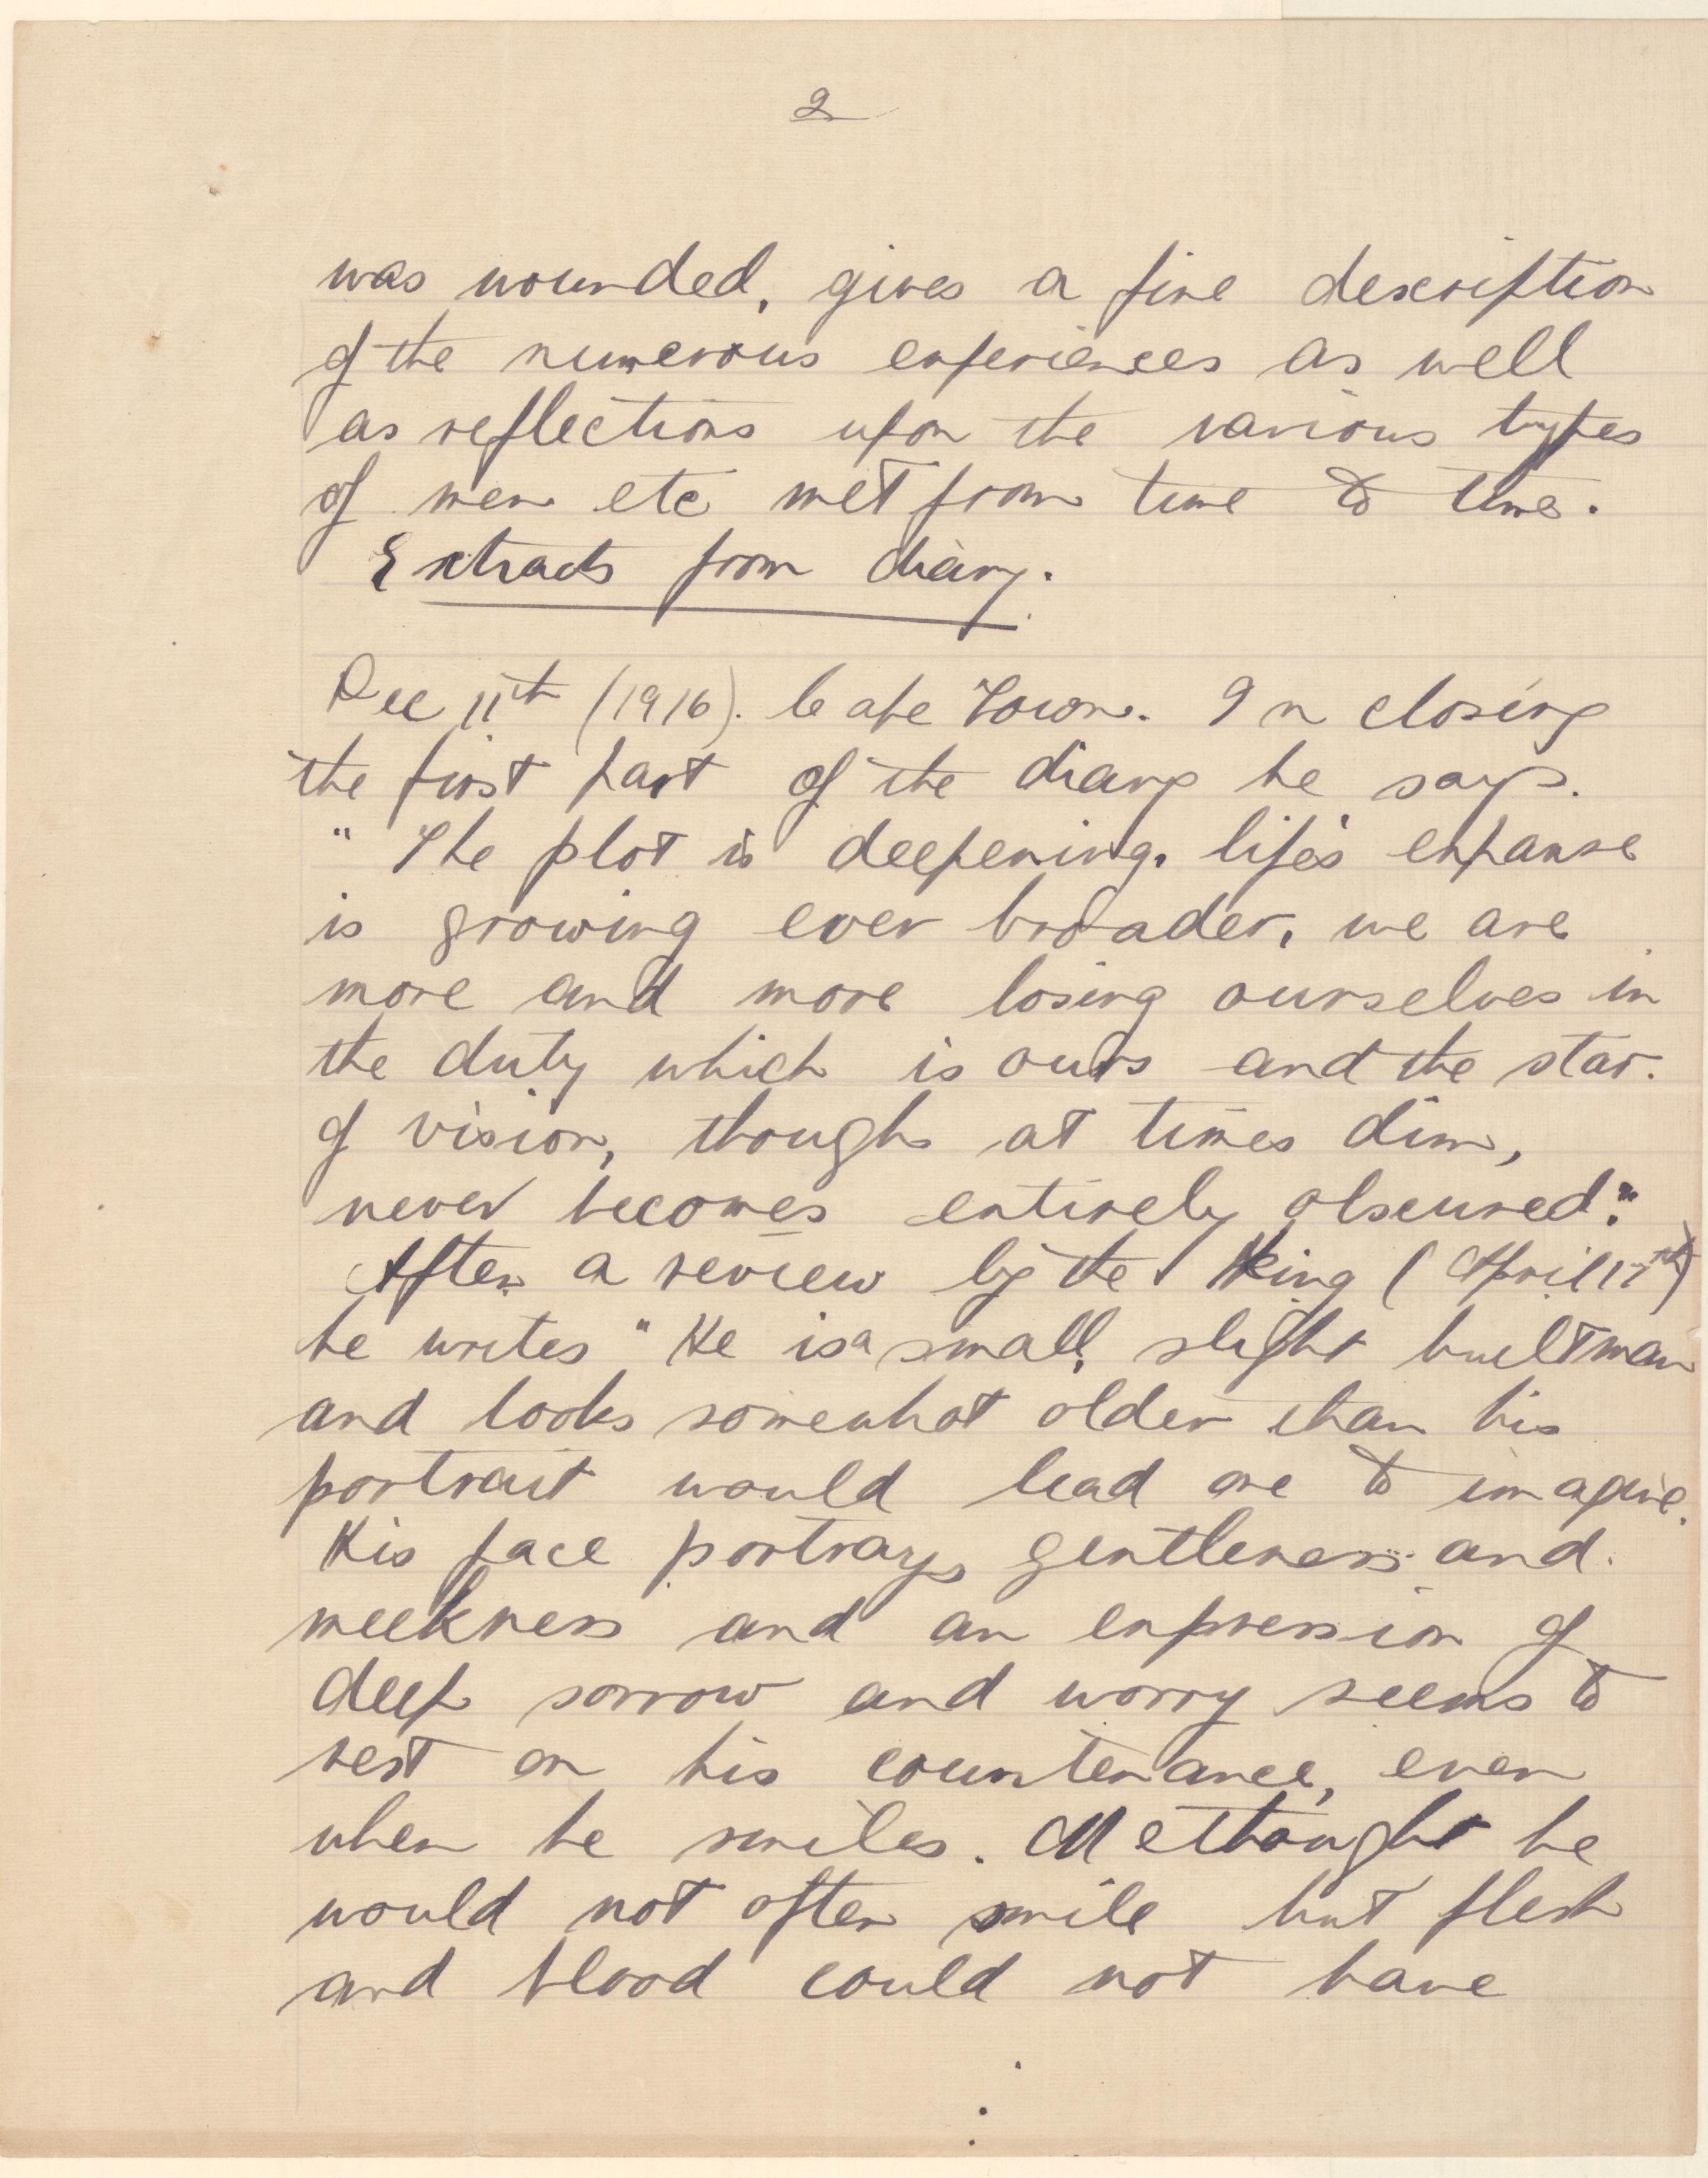 2
was wounded, gives a fine description
of the numerous experiences as well
as reflections upon the various types
of men etc met from time to time.
Extracts from diary.
Dec 11th (1916). Cape Town. In closing
the first part of the diary he says.
" The plot is deepening, life's expanse
is growing ever broader, we are
more and more losing ourselves in
the duty which is ours and the star
of vision, though at times dim,
never becomes entirely obscured."
After a review by the King (April 17th)
he writes " He is a small, slight built man
and looks somewhat older than his
portrait would lead one to imagine.
His face portrays gentleness and
meekness and an expression of
deep sorrow and worry seems to
rest on his countenance, even
when he smiles. Methought he
would not often smile but flesh
and blood could not have